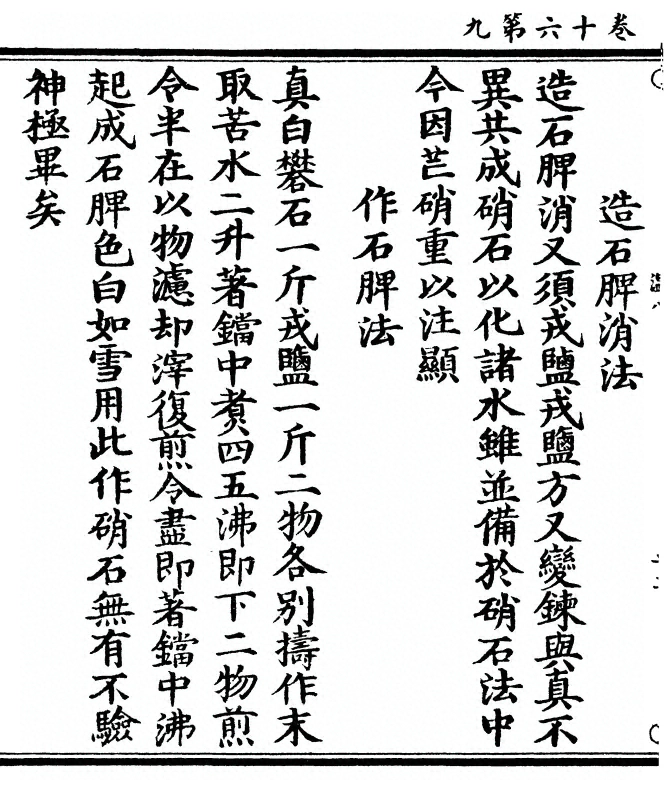 卷十六第九
造石脾消法
造石脾消又須戎鹽戎鹽方又變鍊與真不
異共成硝石以化諸水雖並備於硝石法中
今因芒硝重以注顯
作石脾法
真白礬石一斤戎鹽一斤二物各別擣作末
取苦水二升著鐺中煑四五沸即下二物煎
令半在以物濾却滓復煎令盡即著鐺中沸
起成石脾色白如雪用此作硝石無有不驗
神極畢矣